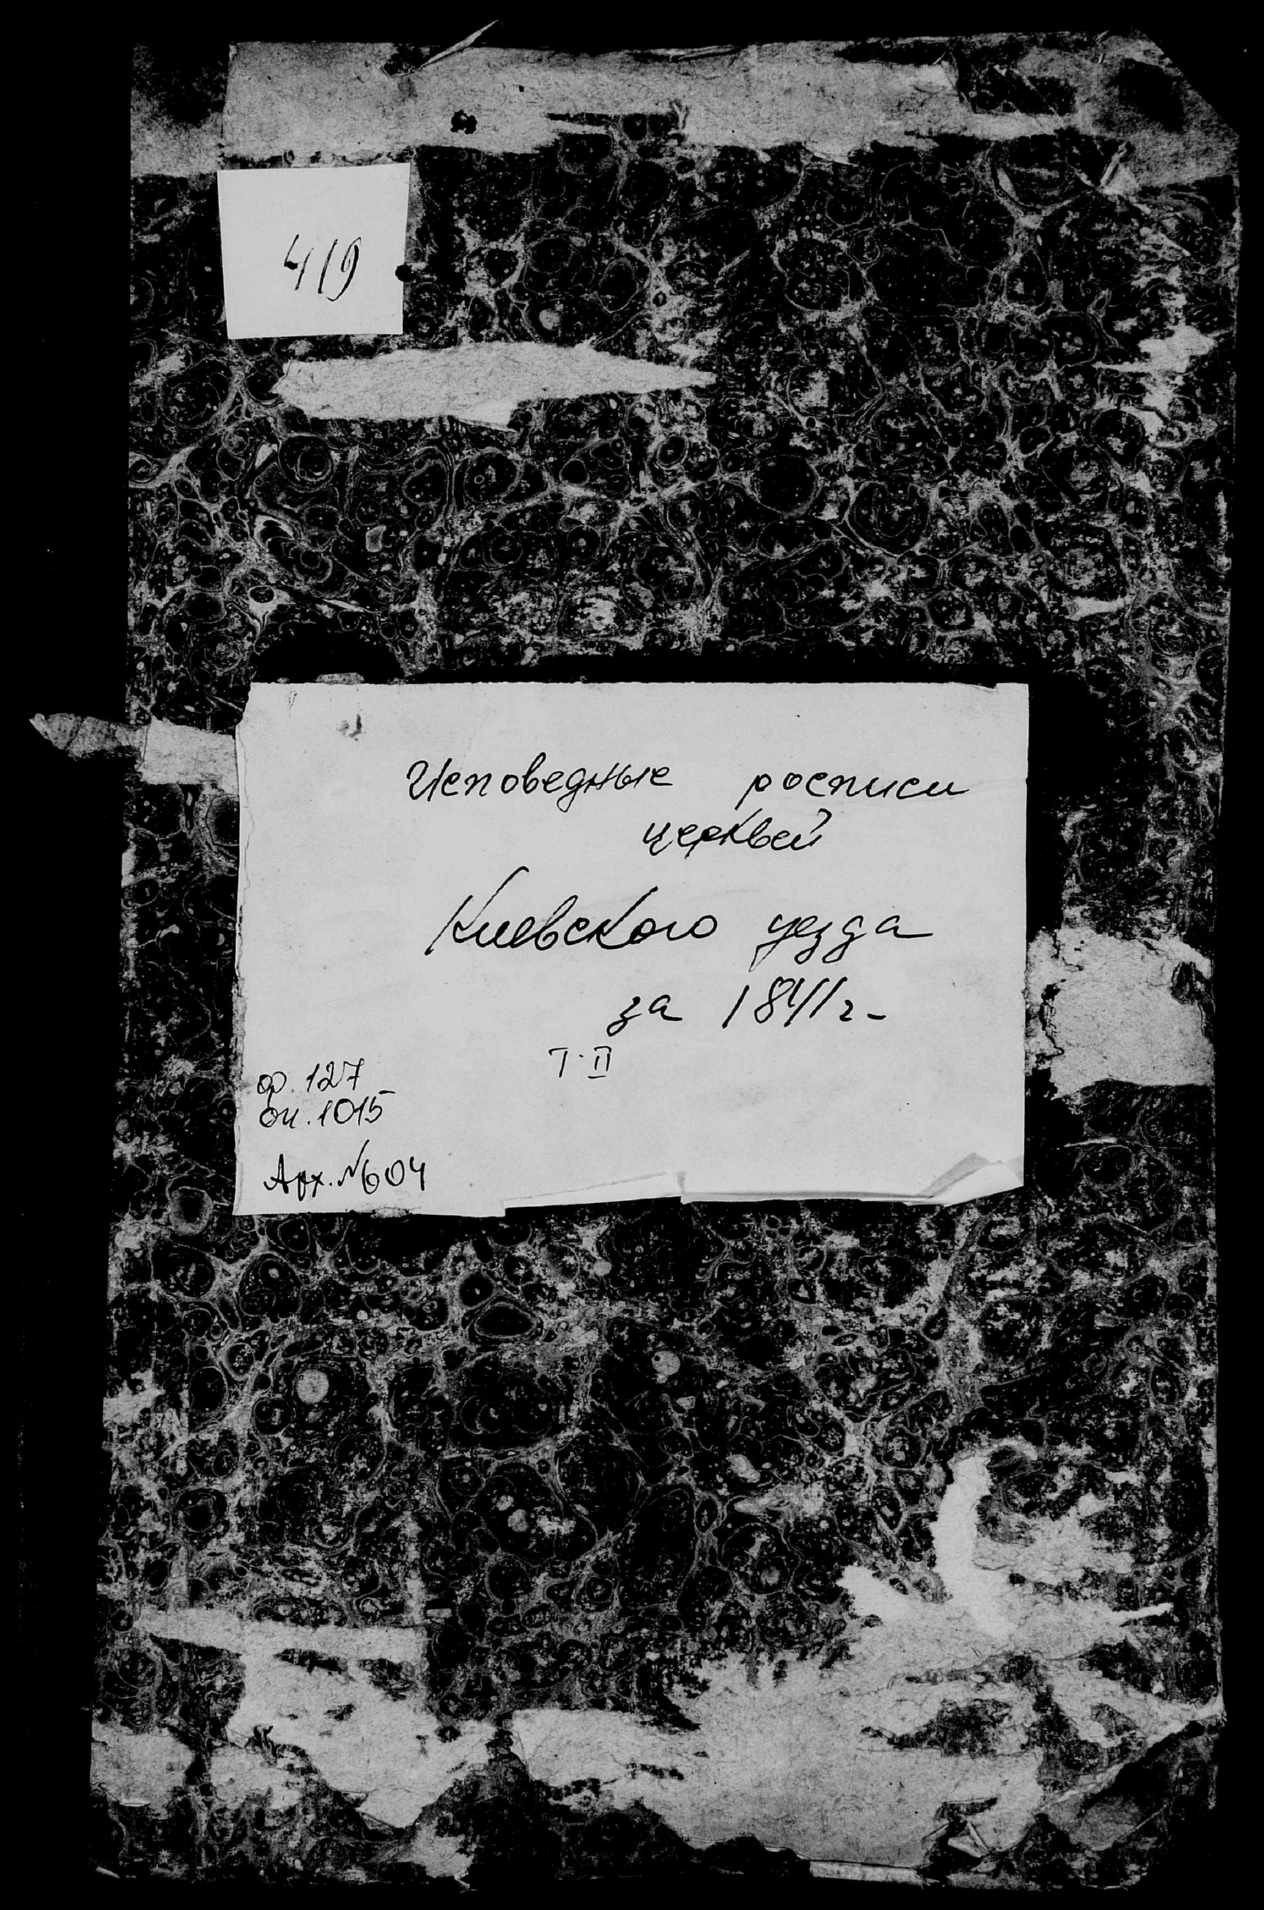 419
Исповедные росписи
церквей
Киевского уезда
за 1841 г.
Т. II
ф. 127
оп. 1015
Арх. № 604